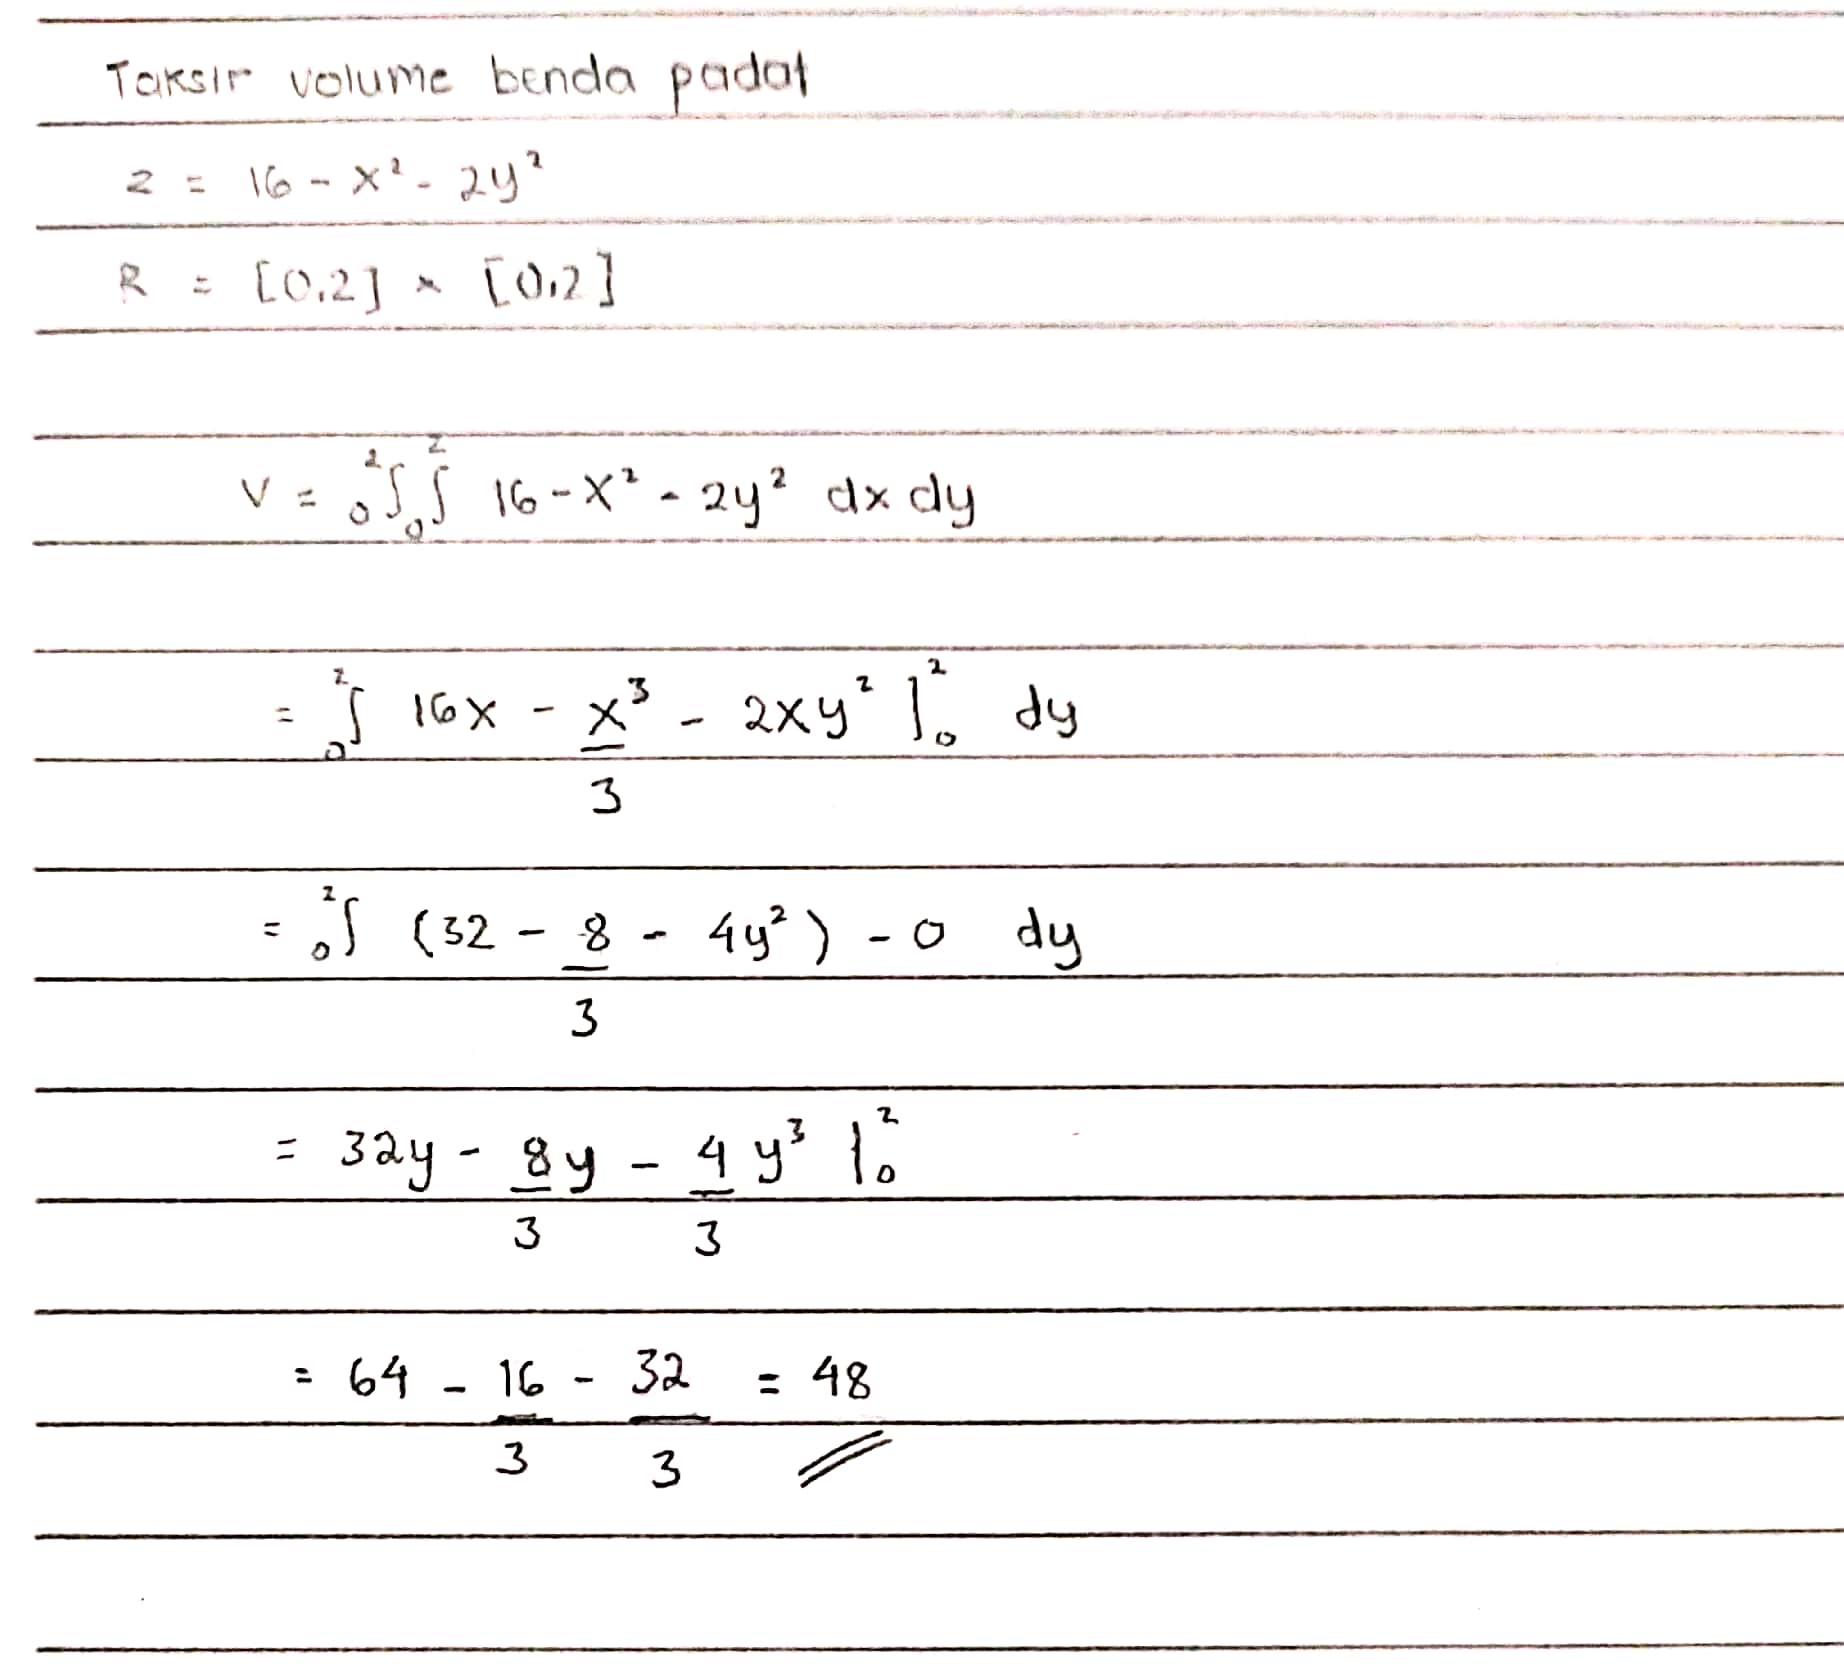 Taksir volume benda padat
z = 16 - x² - 2y²
R = [0,2] x [0,2]
V = ₀²∫ ₀∫² 16 - x² - 2y² dx dy
= ₀²∫ 16x - x³/3 - 2xy² ]₀² dy
= ₀²∫ (32 - 8/3 - 4y²) - 0 dy
= 32y - 8/3 y - 4/3 y³ |₀²
= 64 - 16/3 - 32/3 = 48